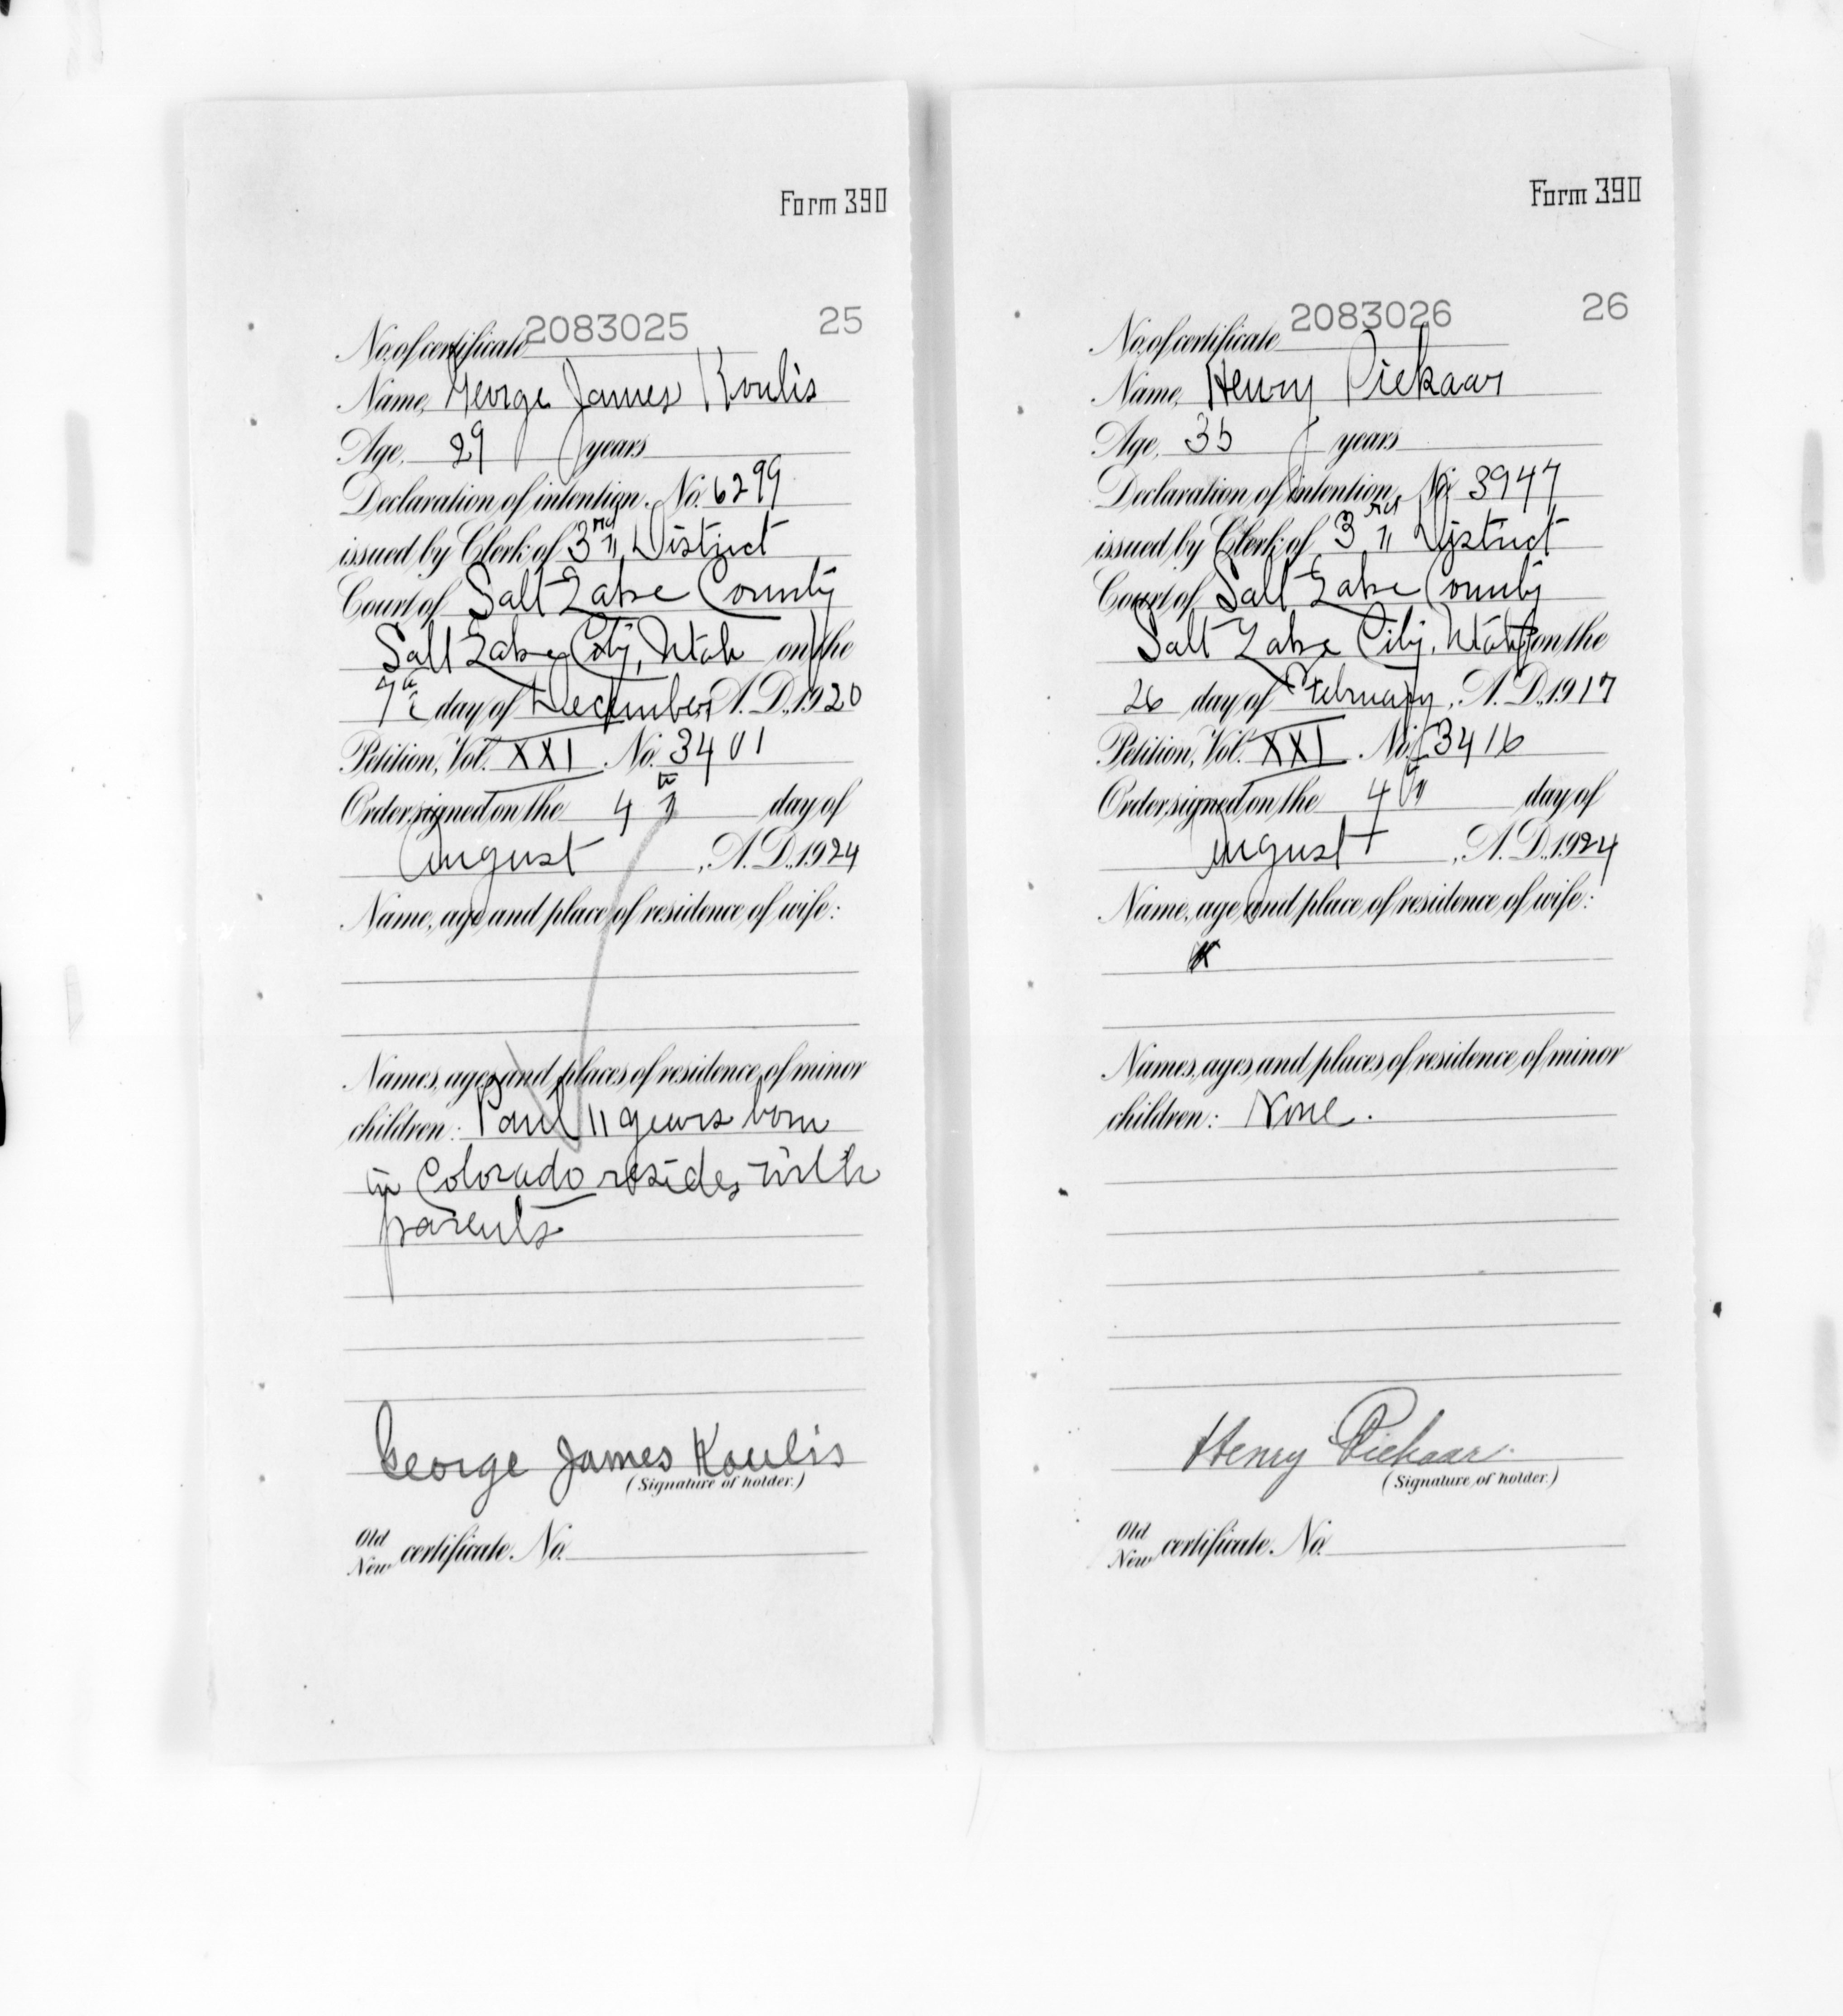 Form 390
No. of certificate 2083025 25
Name, George James Koulis
Age, 29 years
Declaration of intention, No. 6299
issued by Clerk of 3rd District
Court of Salt Lake County
Salt Lake City, Utah on the
7th day of December, A. D., 1920
Petition, Vol. XXI No. 3401
Order signed on the 4th day of
August, A. D., 1924
Name, age and place of residence of wife:
Names, ages and places of residence of minor
children: Paul 11 years born
in Colorado resides with
parents
George James Koulis
(Signature of holder.)
Old
New certificate. No.
Form 390
No. of certificate 2083026 26
Name, Henry Piekaar
Age, 35 years
Declaration of intention, No. 3947
issued by Clerk of 3rd District
Court of Salt Lake County
Salt Lake City, Utah on the
26 day of February, A. D., 1917
Petition, Vol. XXI No. 3416
Order signed on the 4th day of
August, A. D., 1924
Name, age and place of residence of wife:
x
Names, ages and places of residence of minor
children: None.
Henry Piekaar
(Signature of holder.)
Old
New certificate. No.